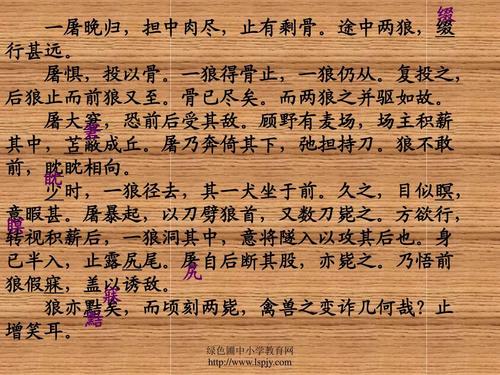 缀
一屠晚归，担中肉尽，止有剩骨。途中两狼，缀
行甚远。
屠惧，投以骨。一狼得骨止，一狼仍从。复投之，
后狼止而前狼又至。骨已尽矣。而两狼之并驱如故。
窘
屠大窘，恐前后受其敌。顾野有麦场，场主积薪
其中，苫蔽成丘。屠乃奔倚其下，弛担持刀。狼不敢
前，眈眈相向。
眈
少时，一狼径去，其一犬坐于前。久之，目似瞑，
意暇甚。屠暴起，以刀劈狼首，又数刀毙之。方欲行，
瞑
转视积薪后，一狼洞其中，意将隧入以攻其后也。身
已半入，止露尻尾。屠自后断其股，亦毙之。乃悟前
尻
狼假寐，盖以诱敌。
寐
狼亦黠矣，而顷刻两毙，禽兽之变诈几何哉？止
黠
增笑耳。
绿色圃中小学教育网
http://www.lspjy.com